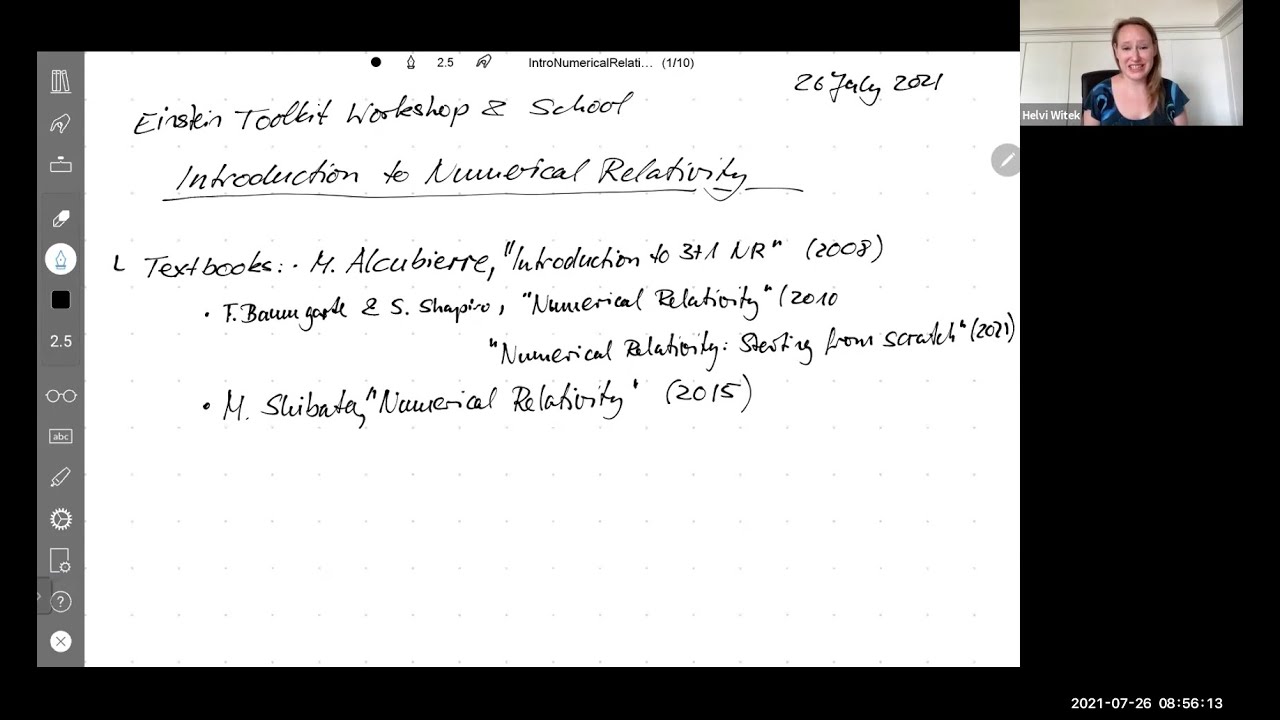 2.5 IntroNumericalRelati... (1/10)
26 July 2021
Helvi Witek
Einstein Toolkit Workshop & School
Introduction to Numerical Relativity
Textbooks: · M. Alcubierre, "Introduction to 3+1 NR" (2008)
· F. Baumgarte & S. Shapiro, "Numerical Relativity" (2010
"Numerical Relativity: Starting from scratch" (2021)
· M. Shibata, "Numerical Relativity" (2015)
2.5
abc
?
2021-07-26 08:56:13